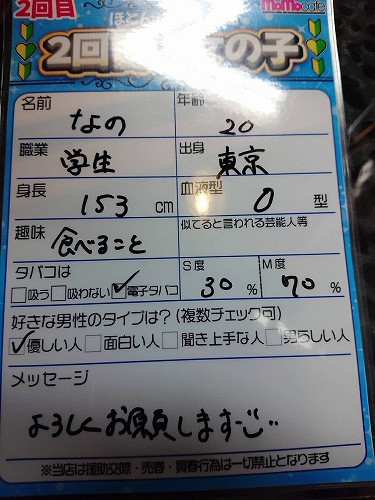 2回目
MoMocafe
2回 の子
名前 年齢
なの 20
職業 出身
学生 東京
身長 血液型
153 cm O 型
趣味 似てると言われる芸能人等
食べること
タバコは S度 M度
吸う 吸わない 電子タバコ 30 % 70 %
好きな男性のタイプは？(複数チェック可)
優しい人 面白い人 聞き上手な人 男らしい人
メッセージ
よろしくお願します
※当店は援助交際・売春・買春行為は一切禁止となります